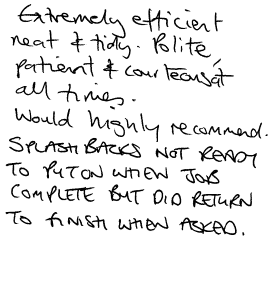 Extremely efficient
neat & tidy. Polite,
patient & courteous at
all times.
Would highly recommend.
SPLASH BACKS NOT READY
TO PUT ON WHEN JOB
COMPLETE BUT DID RETURN
TO FINISH WHEN ASKED.